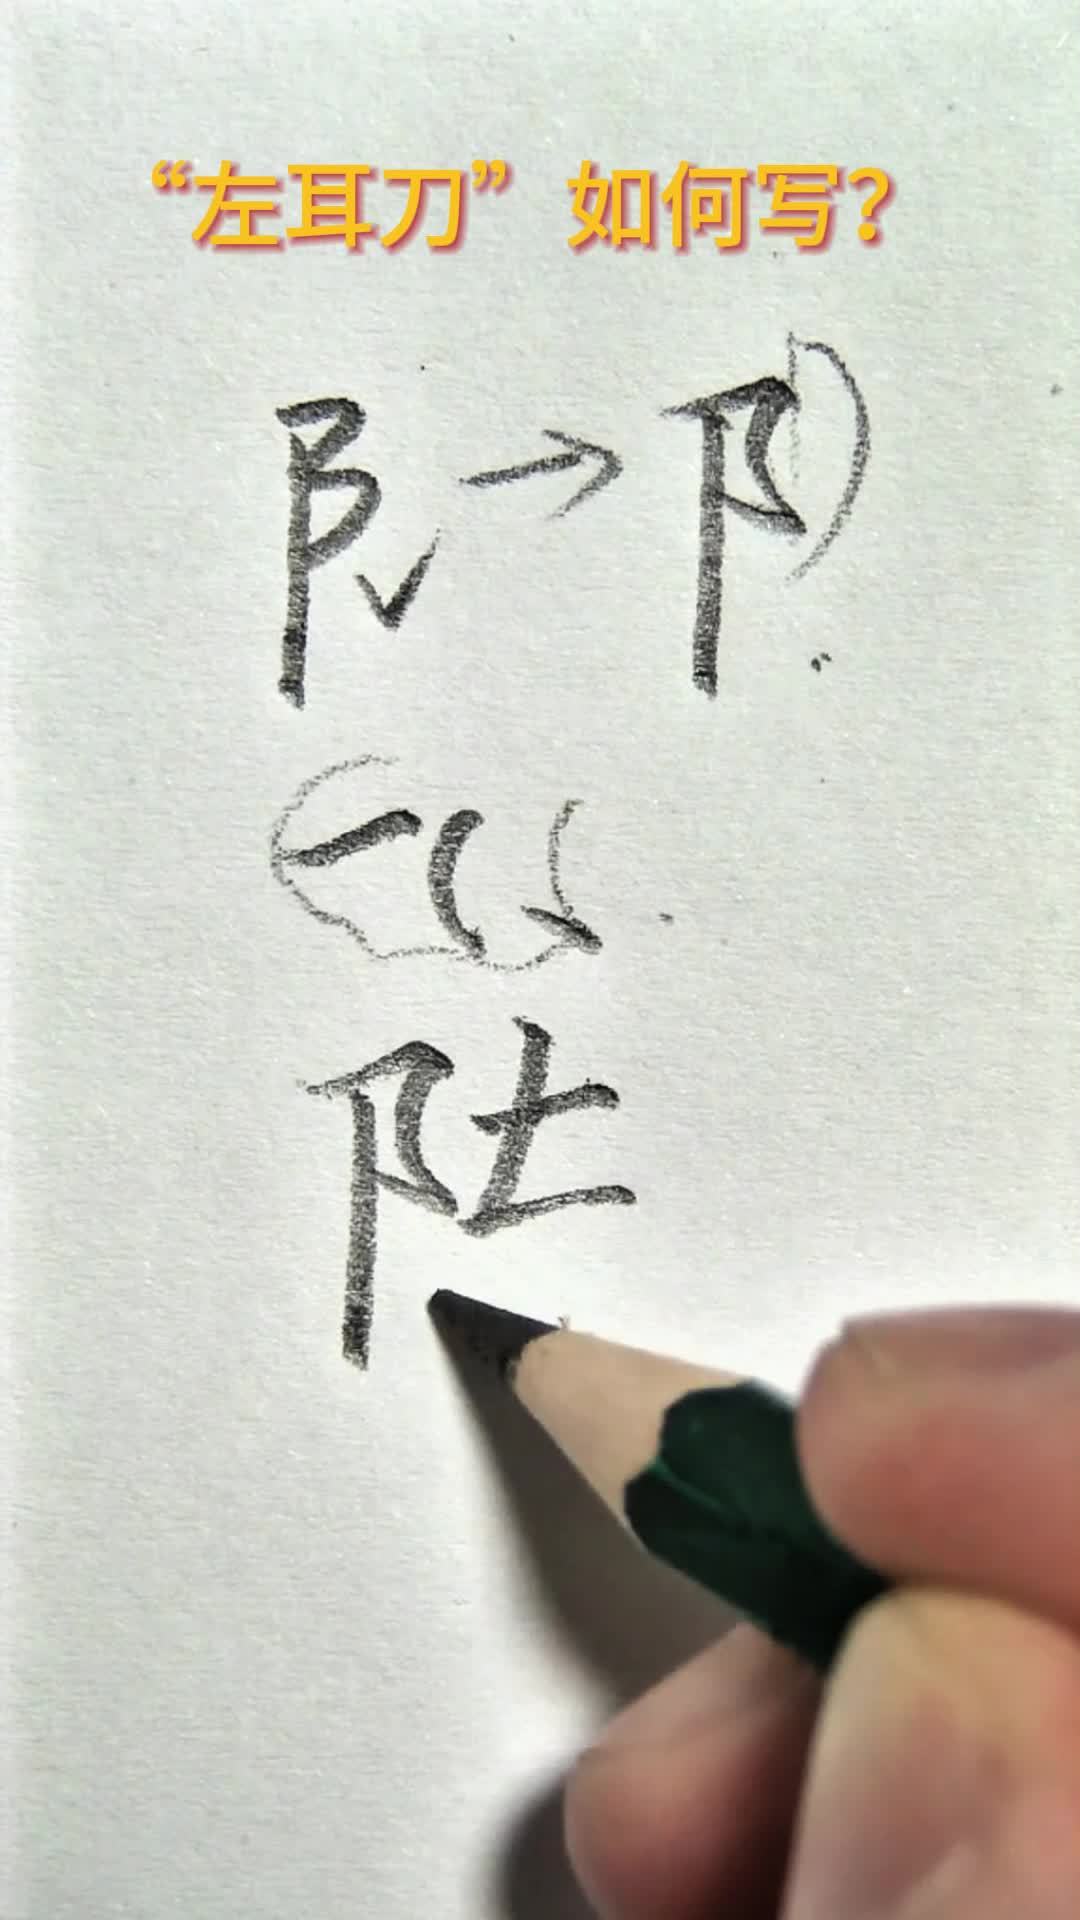 “左耳刀”如何写？
阝→阝